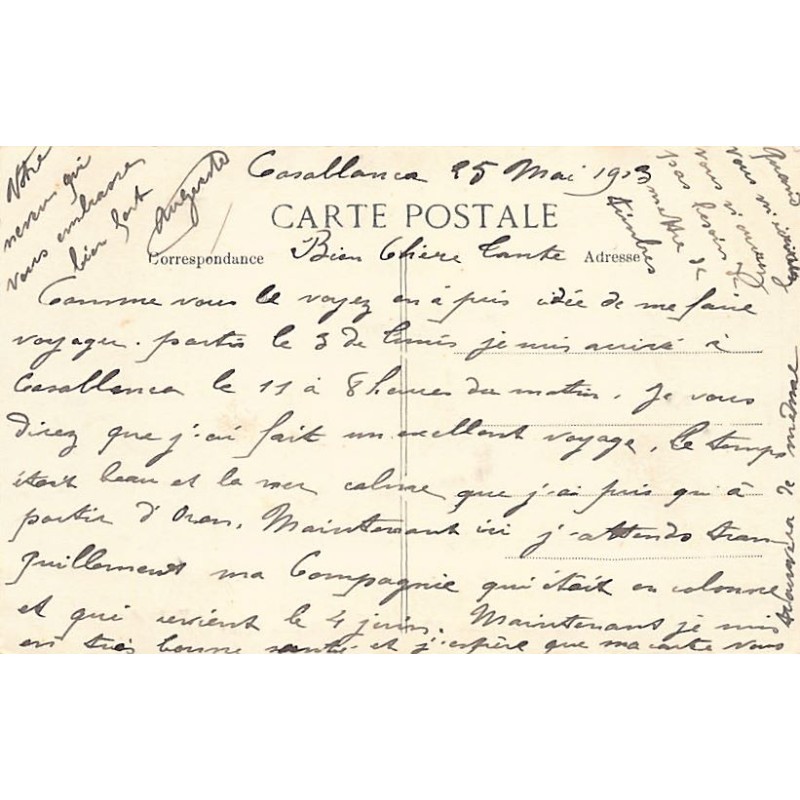 Casablanca 25 Mai 1913
CARTE POSTALE
Correspondance
Adresse
Bien Chère Tante
Comme vous le voyez on à pris idée de me faire
voyager. partis le 3 de Tunis je suis arrivé à
Casablanca le 11 à 8 heures du matin. Je vous
direz que j'ai fait un excellent voyage, le temps
était beau et la mer calme que j'ai pris qu'à
partir d'Oran. Maintenant ici j'attends tran
quillement ma Compagnie qui était en colonne
et qui revient le 4 juin. Maintenant je suis
en très bonne santé et j'espère que ma carte vous
trouvera de même
Votre
neveu qui
vous embrasse
bien fort
Auguste
Quand
vous m'écrirez
vous n'avez
pas besoin de
mettre de
timbres